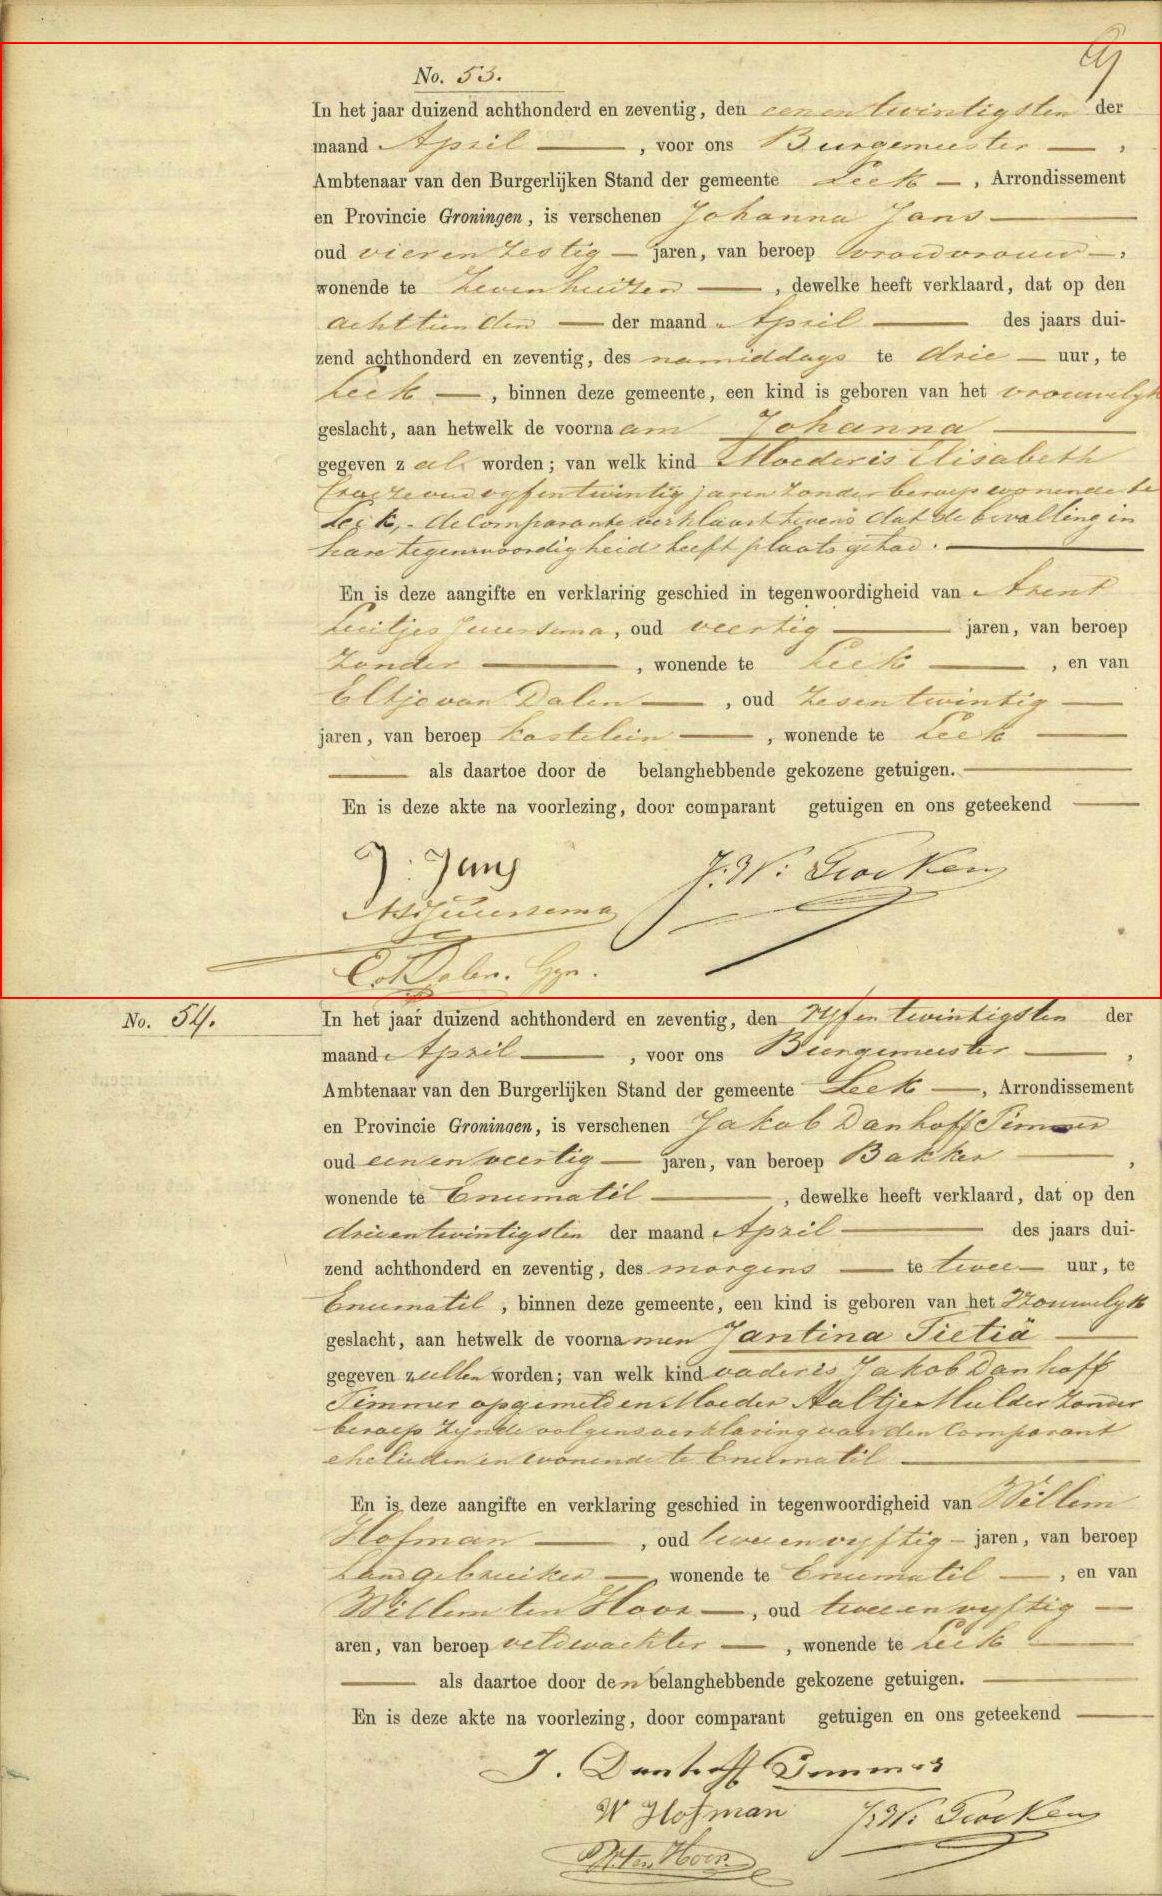 No. 53.
In het jaar duizend achthonderd en zeventig, den eenentwintigsten der
maand April , voor ons Burgemeester ,
Ambtenaar van den Burgerlijken Stand der gemeente Leek , Arrondissement
en Provincie Groningen, is verschenen Johanna Jans
oud vierenzestig jaren, van beroep vroedvrouw ,
wonende te Zevenhuizen , dewelke heeft verklaard, dat op den
achttienden der maand April des jaars dui-
zend achthonderd en zeventig, des namiddags te drie uur, te
Leek , binnen deze gemeente, een kind is geboren van het vrouwelyk
geslacht, aan hetwelk de voornaam Johanna
gegeven zal worden; van welk kind Moeder is Elisabeth
oud vyfentwintig jaren zonder beroep wonende te
Leek, - de Comparante verklaart tevens dat de bevalling in
hare tegenwoordigheid heeft plaats gehad.
En is deze aangifte en verklaring geschied in tegenwoordigheid van Arent
Luitjes Juursema, oud veertig jaren, van beroep
zonder , wonende te Leek , en van
Eltje van Dalen , oud zesentwintig
jaren, van beroep kastelein , wonende te Leek
als daartoe door de belanghebbende gekozene getuigen.
En is deze akte na voorlezing, door comparant getuigen en ons geteekend
J. Jans
Juursema
E. v. Dalen.
No. 54.
In het jaar duizend achthonderd en zeventig, den vyfentwintigsten der
maand April , voor ons Burgemeester ,
Ambtenaar van den Burgerlijken Stand der gemeente Leek , Arrondissement
en Provincie Groningen, is verschenen Jakob Danhoff Timmer
oud eenenveertig jaren, van beroep Bakker ,
wonende te Enumatil , dewelke heeft verklaard, dat op den
drieentwintigsten der maand April des jaars dui-
zend achthonderd en zeventig, des morgens te twee uur, te
Enumatil , binnen deze gemeente, een kind is geboren van het Vrouwelyk
geslacht, aan hetwelk de voornamen Jantina Tietiä
gegeven zullen worden; van welk kind vader is Jakob Danhoff
Timmer opgemeld en Moeder Aaltje Mulder zonder
beroep zynde volgens verklaring van den Comparant
ehelieden en wonende te Enumatil
En is deze aangifte en verklaring geschied in tegenwoordigheid van Willem
Hofman , oud tweeenvyftig jaren, van beroep
Landgebruiker , wonende te Enumatil , en van
Willem ten Hoor , oud tweeenvyftig
aren, van beroep veldwachter , wonende te Leek
als daartoe door den belanghebbende gekozene getuigen.
En is deze akte na voorlezing, door comparant getuigen en ons geteekend
J. Danhoff Timmer
W Hofman
W. ten Hoor.